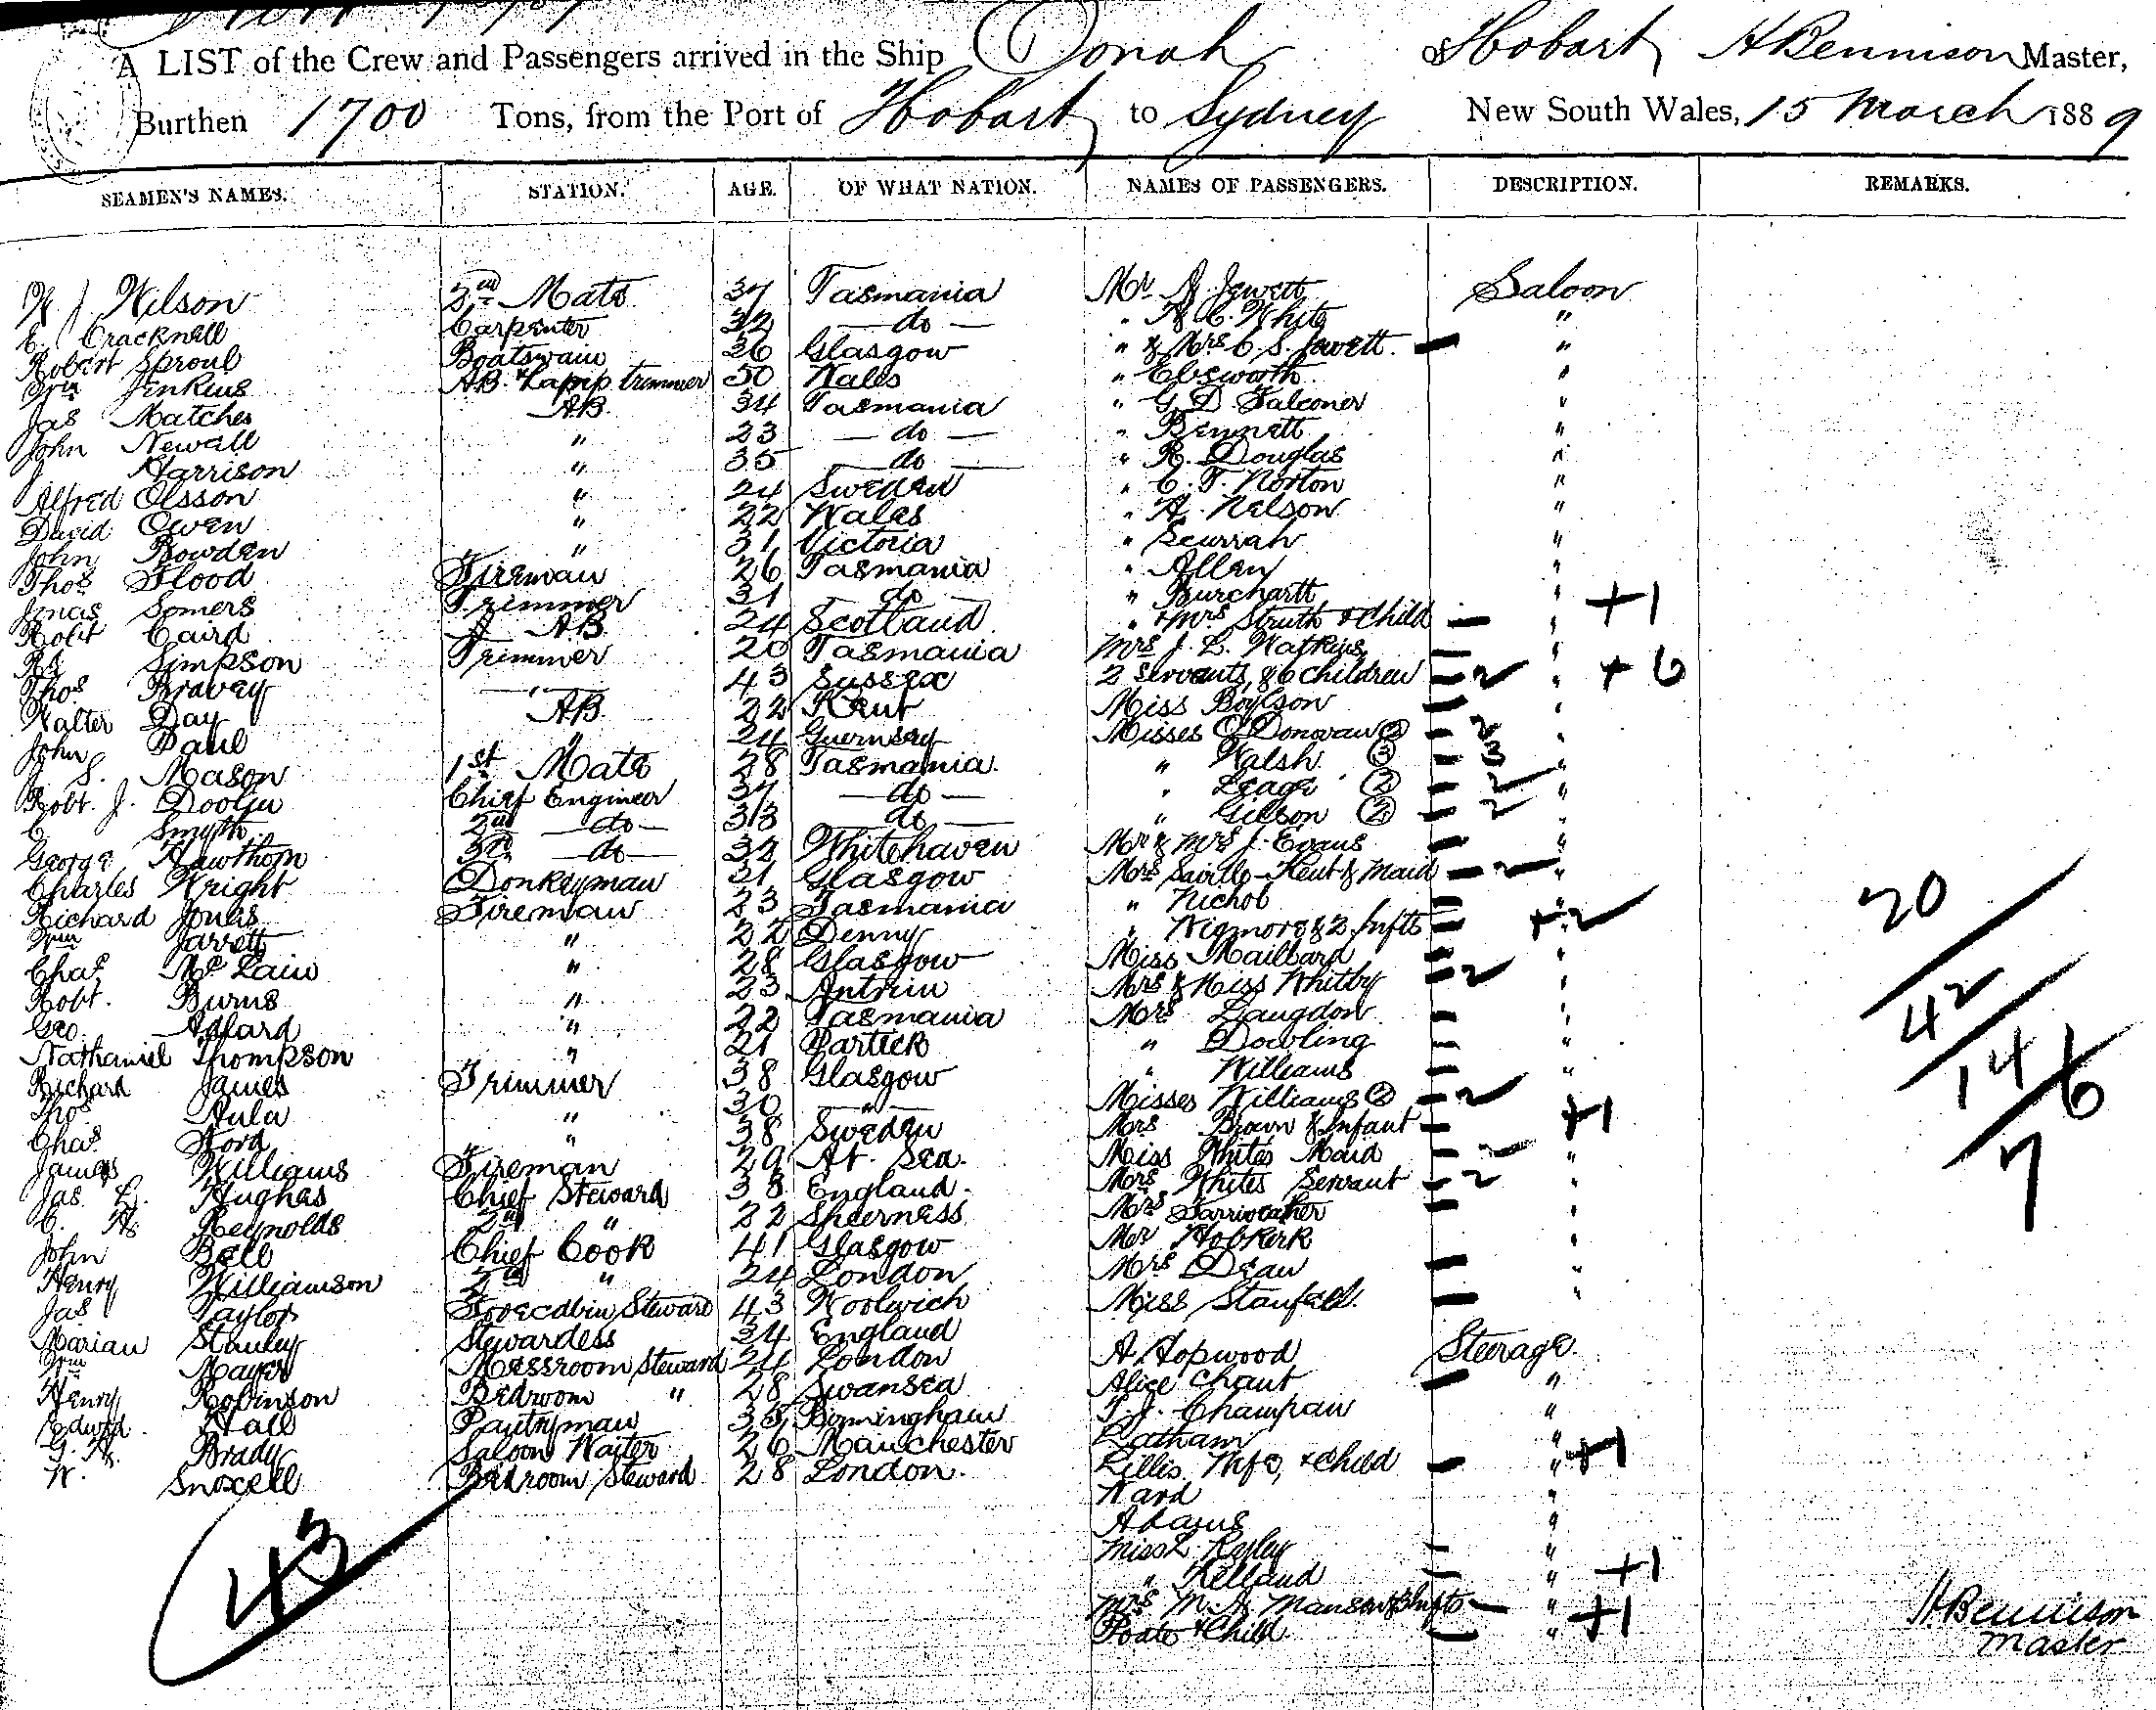 A LIST of the Crew and Passengers arrived in the Ship Oonah of Hobart H Bennison Master,
Burthen 1700 Tons, from the Port of Hobart to Sydney New South Wales, 15 March 1889
SEAMEN'S NAMES. STATION. AGE. OF WHAT NATION. NAMES OF PASSENGERS. DESCRIPTION. REMARKS.
Wilson 2nd Mate 37 Tasmania Mr A. Jewett Saloon
E. Cracknell Carpenter 32 — do — " A C. White "
Robert Sproul Boatswain 36 Glasgow " & Mrs C. S. Jewett. "
Wm Jenkins AB. & Lamp trimmer 50 Wales " Ebsworth "
Jas Matches AB. 34 Tasmania " G. D. Falconer "
John Newall " 23 — do — " Bennett "
J. Harrison " 35 — do — " R. Douglas "
Alfred Olsson " 24 Sweden " C. F. Norton "
David Owen " 22 Wales " A. Nelson "
John Bowden " 31 Victoria " Scurrah "
Thos Flood Fireman 26 Tasmania " Allen "
Jonas Somers Trimmer 31 do " Burchartt "
Robt Caird AB 24 Scotland " & Mrs Struth & Child " +1
Simpson Trimmer 20 Tasmania Mrs J. L. Watkins "
Thos Bravey 43 Sussex 2 Servants, & 6 Children 2 " + 6
Walter Day AB. 22 Kent Miss Boylson "
John Paul " 24 Guernsey Misses O'Donovan ② 2 "
J S. Mason 1st Mate 28 Tasmania. " Walsh ③ 3 "
Robt. J. Doolin Chief Engineer 37 — do — " Leage ② 2 "
C. Smyth. 2nd — do — 33 — do — " Gilson ② 2 "
George Hawthorn 3rd — do — 32 Whitehaven Mr & Mrs J. Evans "
Charles Wright Donkeyman 31 Glasgow Mrs Saville-Kent & Maid 2 "
Richard Jones Fireman 23 Tasmania " Nichol " 20
Wm Jarrett " 22 Denny " Wigmore & 2 Infts + 2
Chas Mc Lain " 28 Glasgow Miss Maillard "
Robt. Burns " 23 Antrim Mrs & Miss Whitby 2 " 42
Geo. Adfard " 22 Tasmania Mrs Langdon "
Nathaniel Thompson " 21 Partick " Dowling " 14 6
Richard James Trimmer 38 Glasgow " Williams "
Thos Aula " 30 — " — Misses Williams ② 2
Chas Ford " 38 Sweden Mrs Brown & Infant +1
James Williams Fireman 29 At Sea. Miss White's Maid 2 " 7
Jas L. Hughes Chief Steward 38 England. Mrs Whites Servant 2 "
C. Reynolds 2nd " 22 Sheerness Mrs "
John Bell Chief Cook 41 Glasgow Mr Hobkirk "
Henry Williamson 2nd " 24 London Mrs Dean "
Jas Taylor Forecabin Steward 43 Woolwich Miss "
Marian Stanley Stewardess 34 England
Wm Mayer Messroom Steward 24 London A. Hopwood Steerage.
Henry Robinson Bedroom " 28 Swansea Alice Chant "
Edwd. Hall Pantryman 35 Birmingham T. J. Champion "
G. Brady Saloon Waiter 26 Manchester Latham "
W. Snocell Bedroom Steward 28 London. Lillis Wife, & Child " +1
Ward "
Adams "
Miss L. Kesley "
" Kelland " +1
Mrs M. A. Manson & Infts " +1
Poate & Child "
43
H Bennison
Master